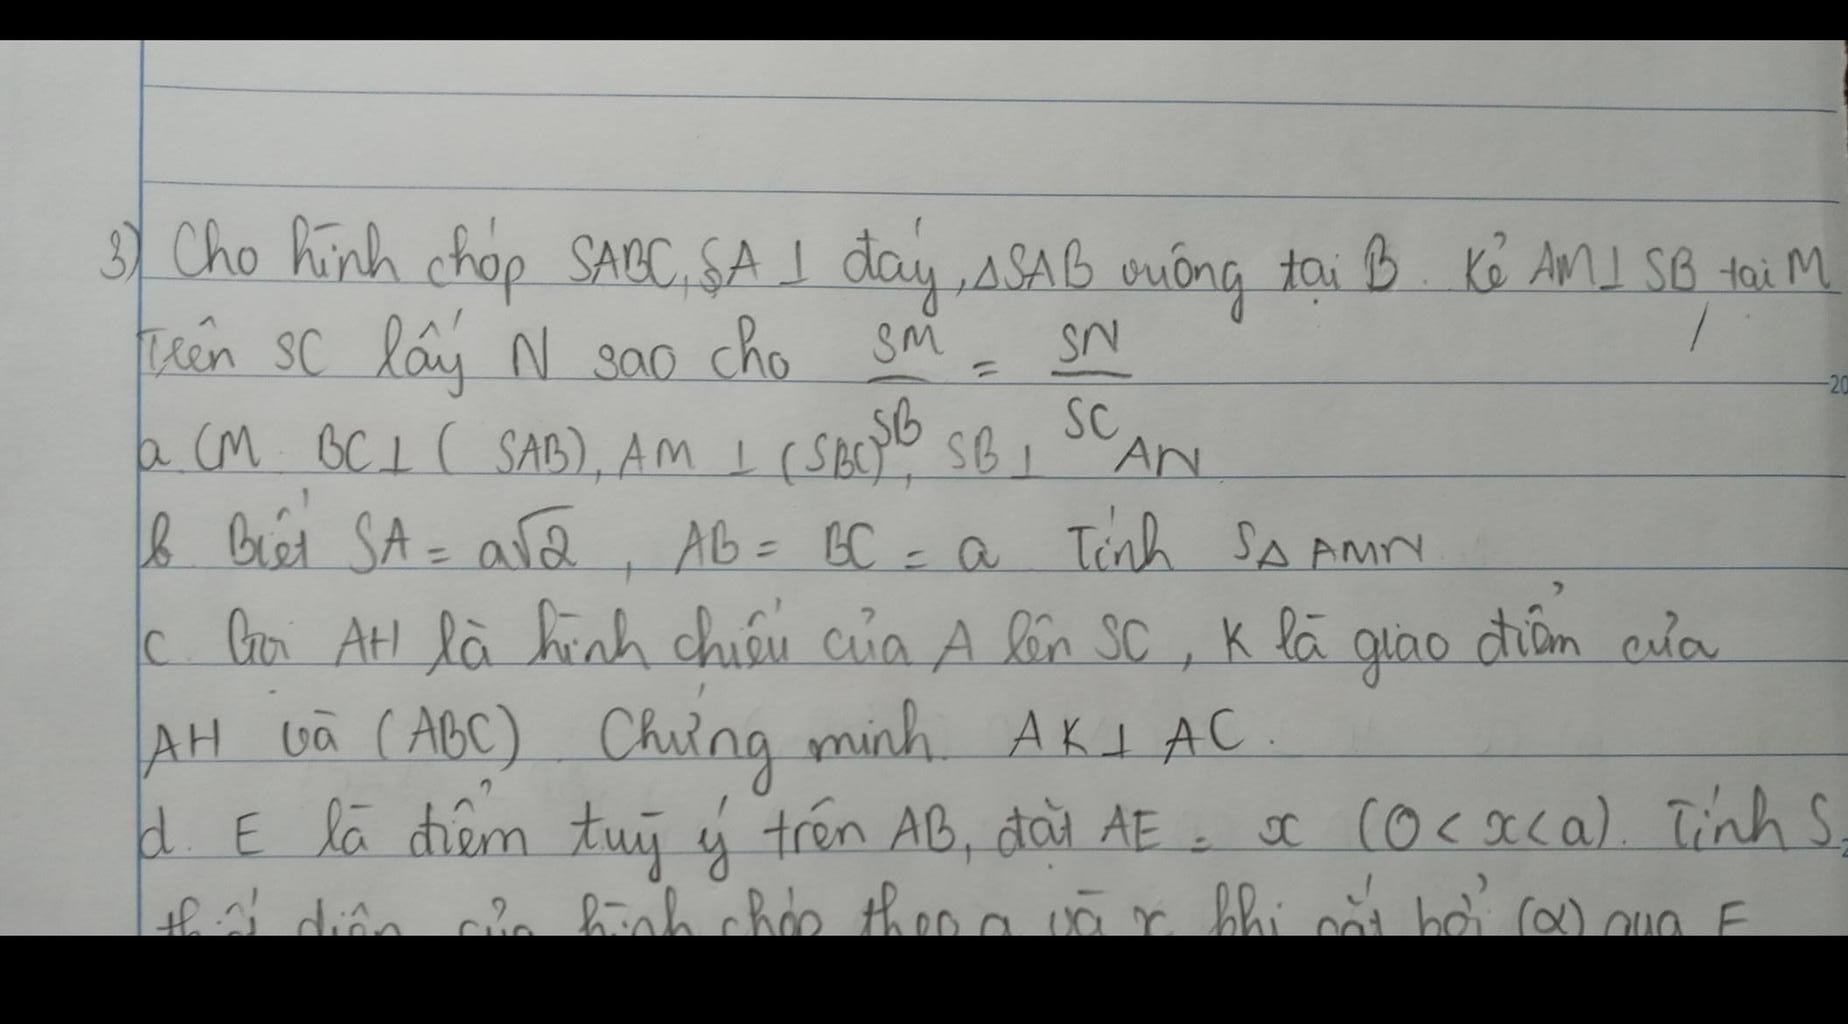 3) Cho hình chóp SABC, SA ⊥ đáy, △SAB vuông tại B. Kẻ AM ⊥ SB tại M
Trên SC lấy N sao cho SM/SB = SN/SC
a. CM BC ⊥ (SAB), AM ⊥ (SBC), SB ⊥ AN
b. Biết SA = a√2, AB = BC = a Tính S△AMN
c. Gọi AH là hình chiếu của A lên SC, K là giao điểm của
AH và (ABC). Chứng minh AK ⊥ AC.
d. E là điểm tuỳ ý trên AB, đặt AE = x (0 < x < a). Tính S
thiết diện của hình chóp theo a và x khi cắt bởi (α) qua E
20